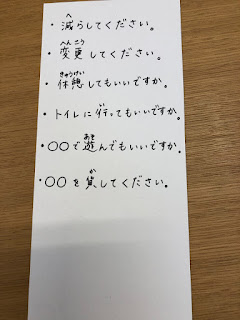 ・減らしてください。
・変更してください。
・休憩してもいいですか。
・トイレに行ってもいいですか。
・〇〇で遊んでもいいですか。
・〇〇を貸してください。